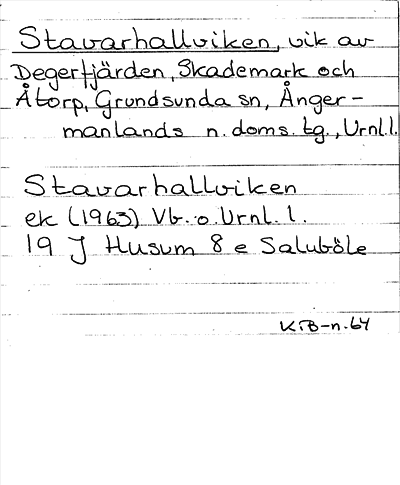 Stavarhallviken, vik av
Degerfjärden, Skademark och
Åtorp, Grundsunda sn, Ånger-
manlands n. doms. tg., Vrnl.l.
Stavarhallviken
ek (1963) Vb. o. Vrnl. l.
19 J Husum 8 e Saluböle
KTB-n. 64